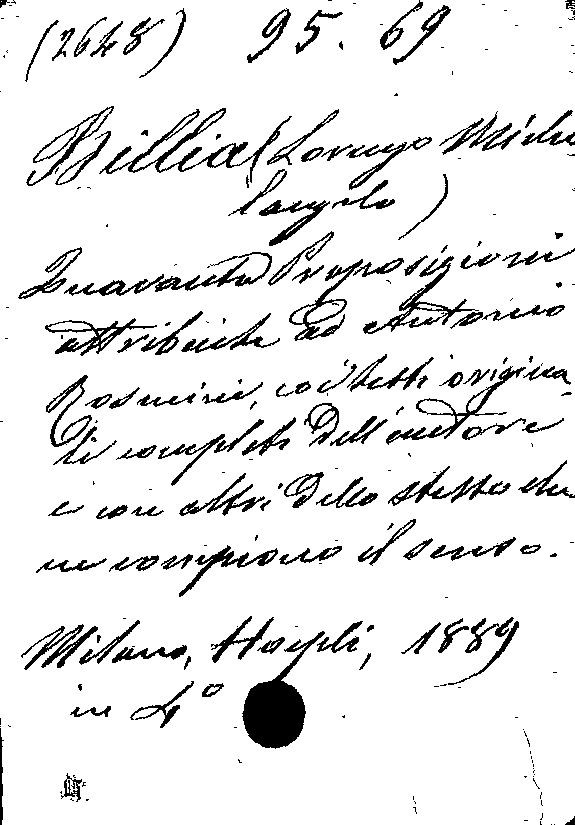 (2648) 95.69
Billia (Lorenzo Miche
langelo)
Quaranta Proposizioni
attribuite ad Antonio
Rosmini, coi testi origina
li completi dell'autore
e con altri dello stesso che
ne compiono il senso.
Milano, Hoepli, 1889
in 4°